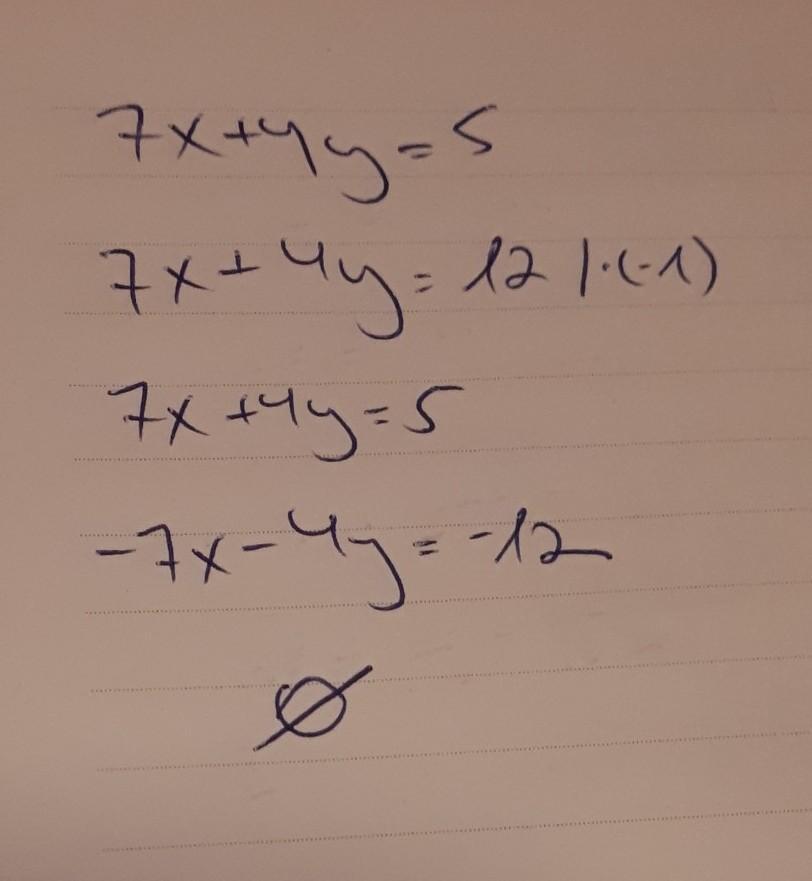 7x+4y=5
7x+4y=12 |·(-1)
7x+4y=5
-7x-4y=-12
∅